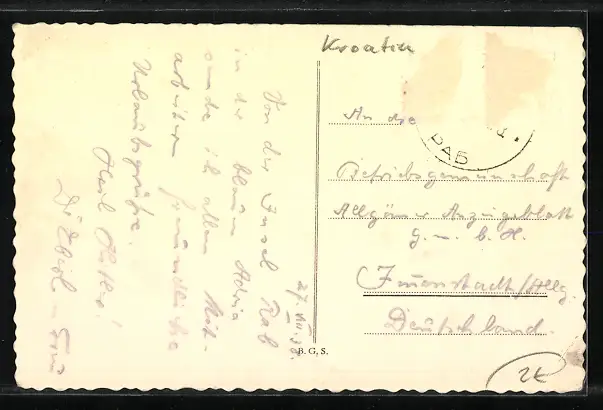 Kroatien
27. VIII. 38.
Von der Insel Rab
in der blauen Adria
sende ich allen Mit-
arbeitern freundliche
Urlaubsgrüße.
Heil Hitler!
An die
РАБ
Betriebsgemeinschaft
Allgäuer Anzeigeblatt
G. m. b. H.
Immenstadt/Allg.
Deutschland.
B. G. S.
2K